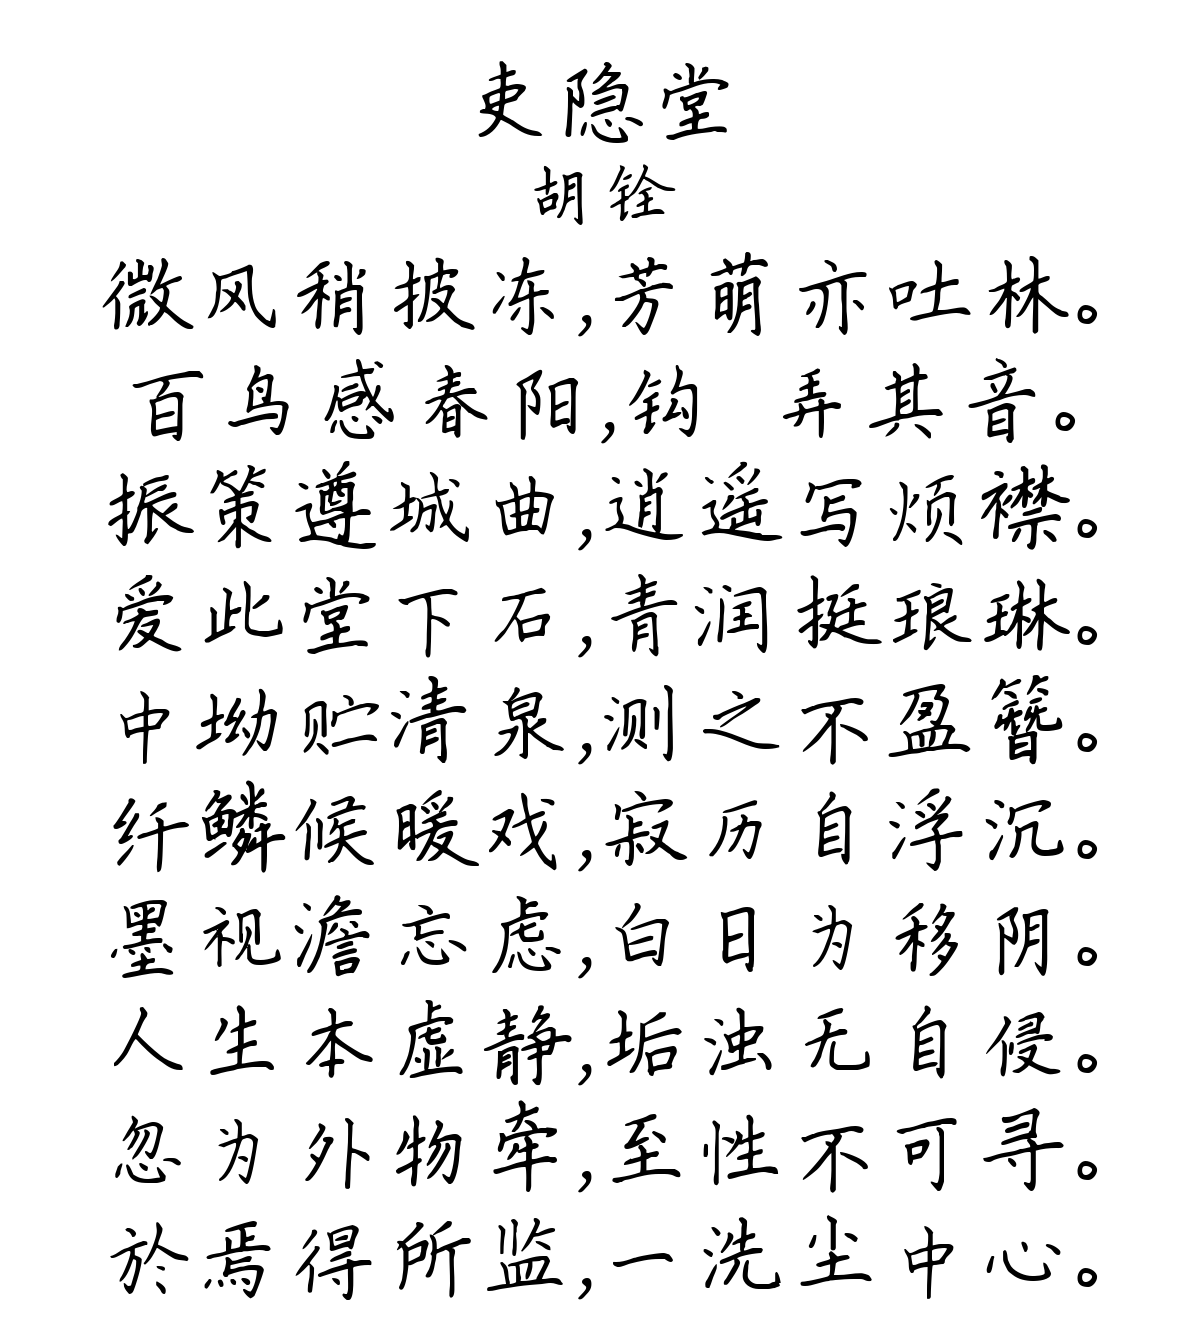 吏隐堂
胡铨
微风稍披冻,芳萌亦吐林。
百鸟感春阳,钩 弄其音。
振策遵城曲,逍遥写烦襟。
爱此堂下石,青润挺琅琳。
中坳贮清泉,测之不盈簪。
纤鳞候暖戏,寂历自浮沉。
墨视澹忘虑,白日为移阴。
人生本虚静,垢浊无自侵。
忽为外物牵,至性不可寻。
於焉得所监,一洗尘中心。